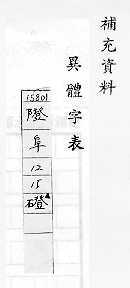 補充資料
異體字表
(580)
隥
阜
12
15
磴